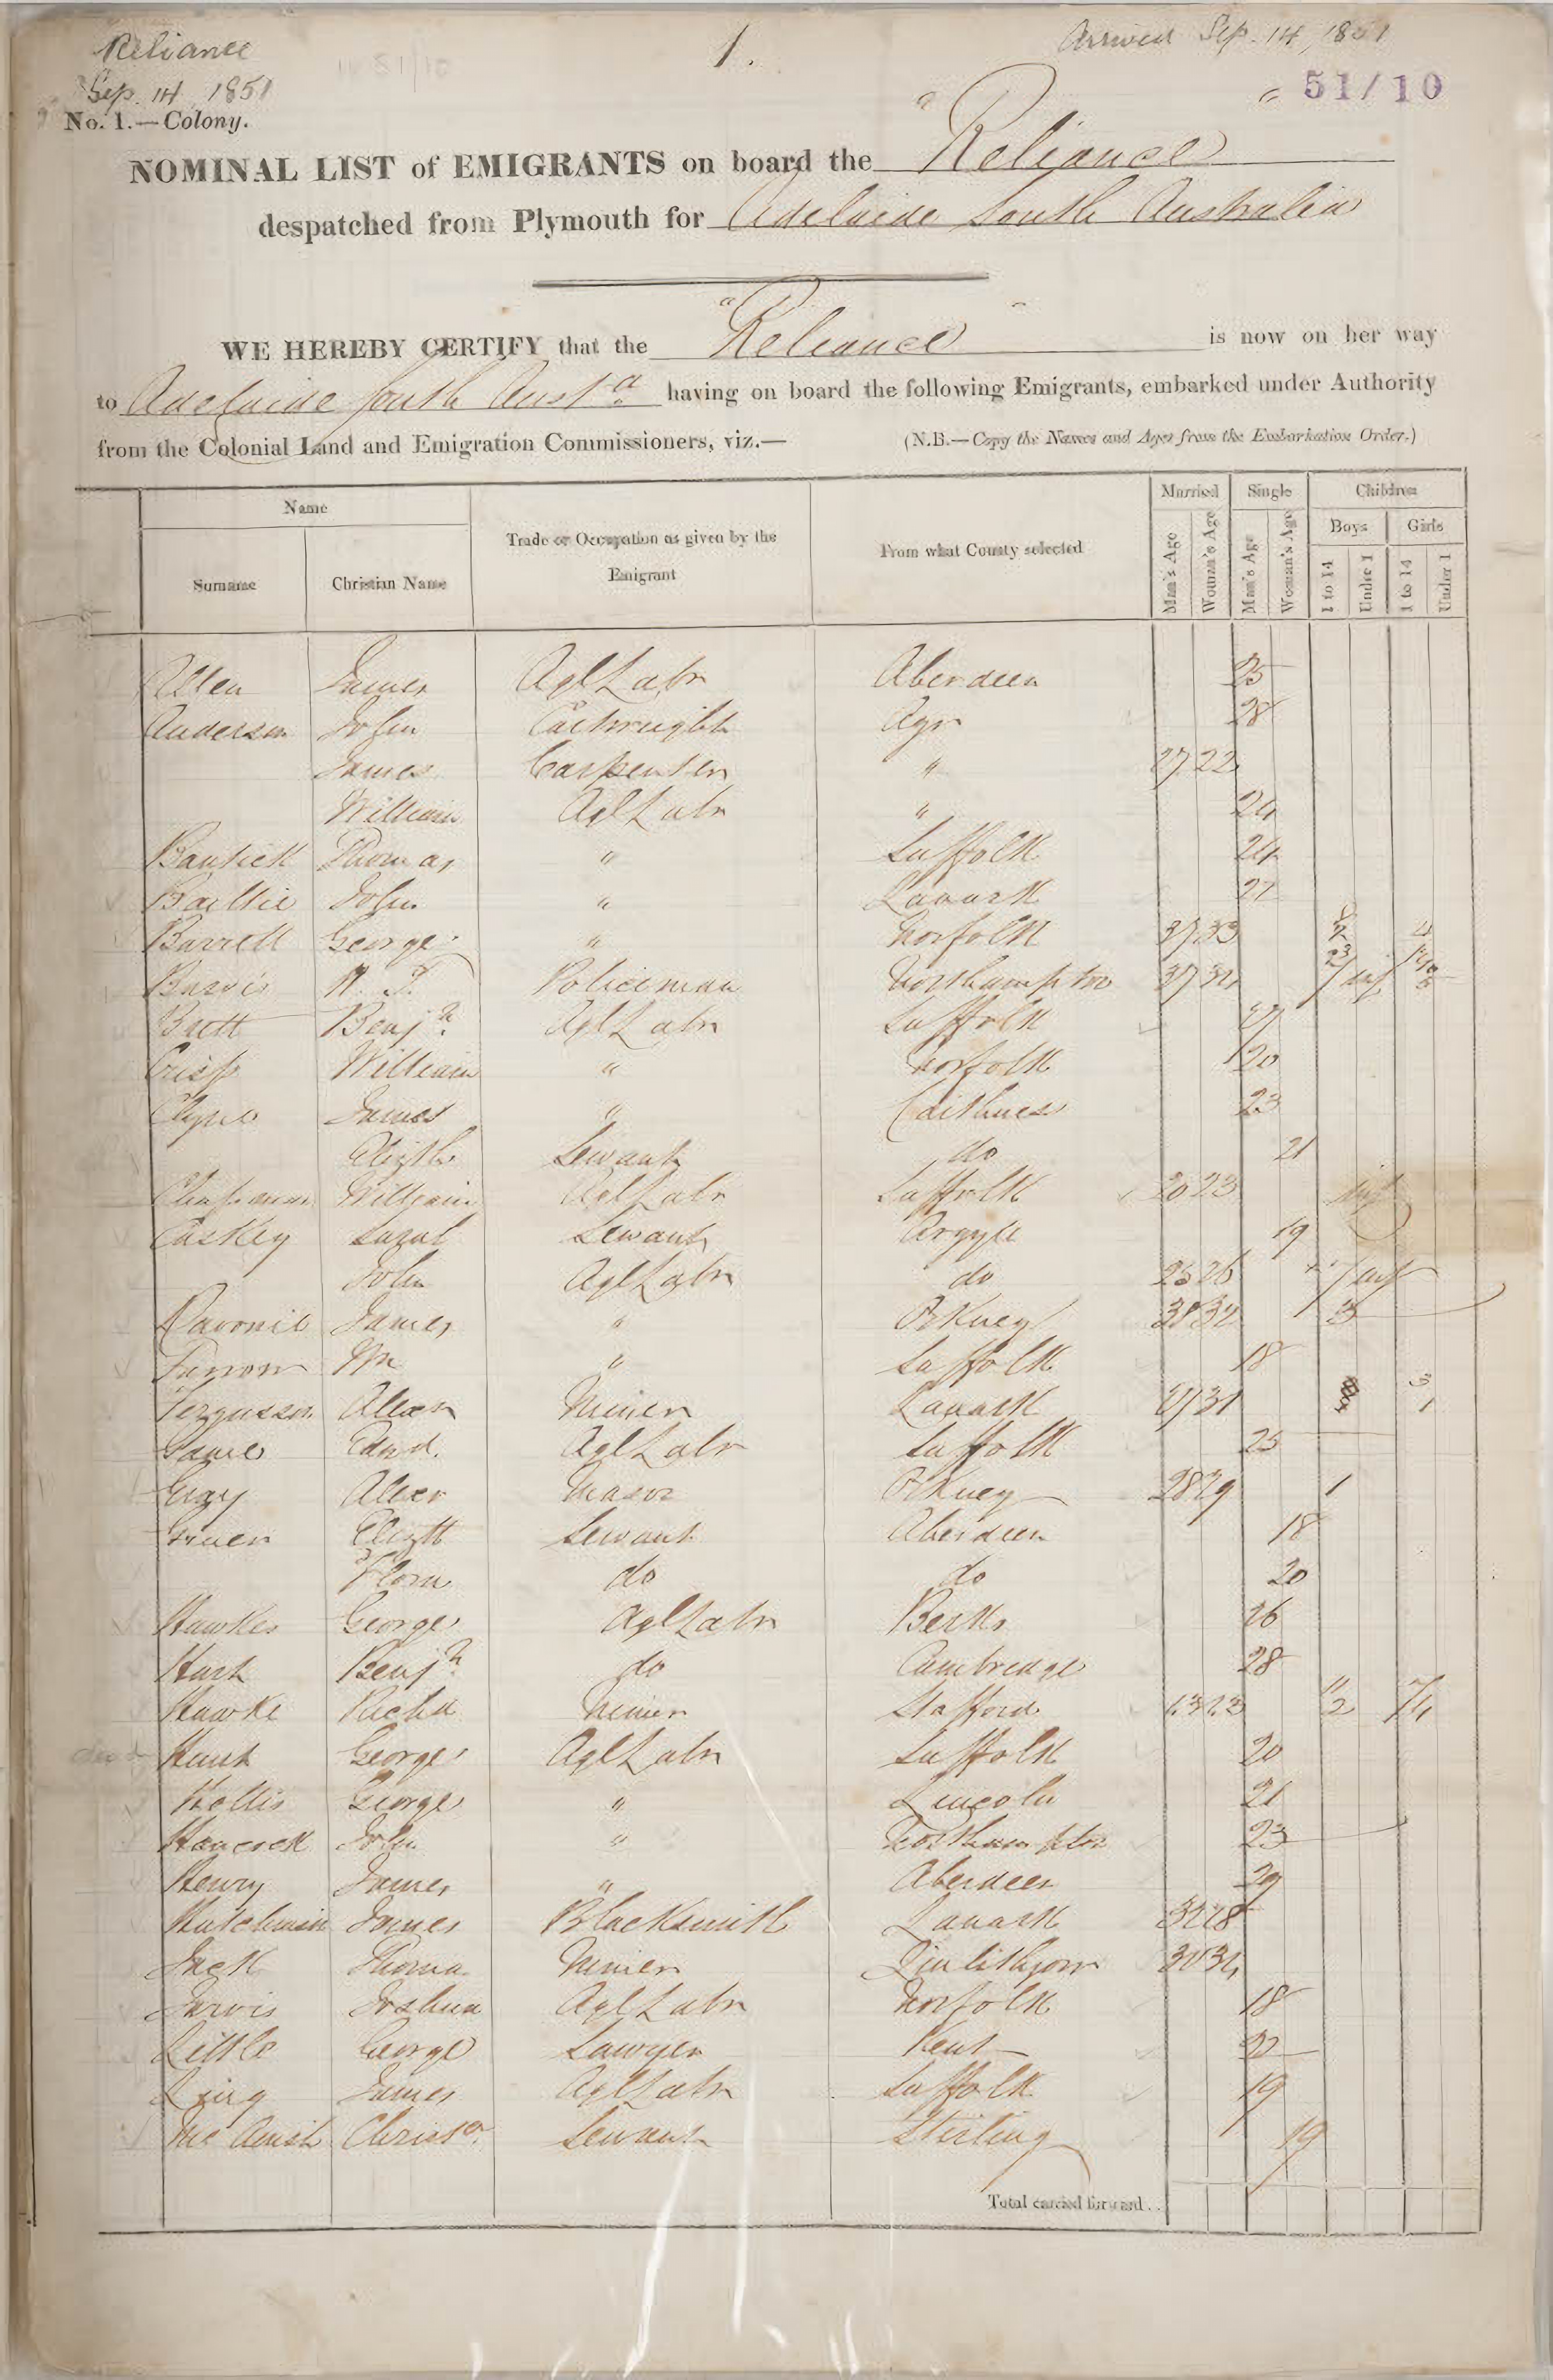 Reliance
Sep. 14 1851
1.
Arrived Sep. 14, 1851
51/10
No. 1.—Colony.
NOMINAL LIST of EMIGRANTS on board the "Reliance"
despatched from Plymouth for Adelaide South Australia
WE HEREBY CERTIFY that the "Reliance" is now on her way
to Adelaide South Aust.a having on board the following Emigrants, embarked under Authority
from the Colonial Land and Emigration Commissioners, viz.— (N.B.—Copy the Names and Ages from the Embarkation Order.)
Name
Surname
Christian Name
Trade or Occupation as given by the Emigrant
From what County selected
Married
Man's Age
Woman's Age
Single
Man's Age
Woman's Age
Children
Boys
1 to 14
Under 1
Girls
1 to 14
Under 1
Allen James Agl Labr Aberdeen
Anderson John Cartwright Ayr 28
James Carpenter " 27 22
William Agl Labr " 24
Thomas " Suffolk 24
Baillie John " Lanark
Barrell George " Norfolk 37 33 4
Policeman Northampton
Brett Benjn Agl Labr Suffolk
Crisp William " Norfolk 20
Clyne James " Caithness 23
Elizth Servant do 21
Chapman William Agl Labr Suffolk 20 23 inf
Caskey Servant Argyle 19
John Agl Labr do 25 26 inf
James " Orkney 3
Wm " Suffolk 18
Fergusson Alexr Miner Lanark 31 3 1
Edwd. Agl Labr Suffolk 25
Gray Alexr Mason Orkney 28 29 1
Elizth Servant Aberdeen 18
Flora do do 20
Hawkes George Agl Labr Berks 26
Benjn do Cambridge 28
Hawke Richd Miner Stafford
Hunt George Agl Labr Suffolk 20
Hollis George " Lincoln 21
Hancock John " Northampton 23
Henry James " Aberdeen 29
James Blacksmith Lanark
Jack Thomas Miner Linlithgow
Jarvis Joshua Agl Labr Norfolk 18
Little George Sawyer Kent
Ling James Agl Labr Suffolk 19
Servant Stirling 19
Total carried forward..